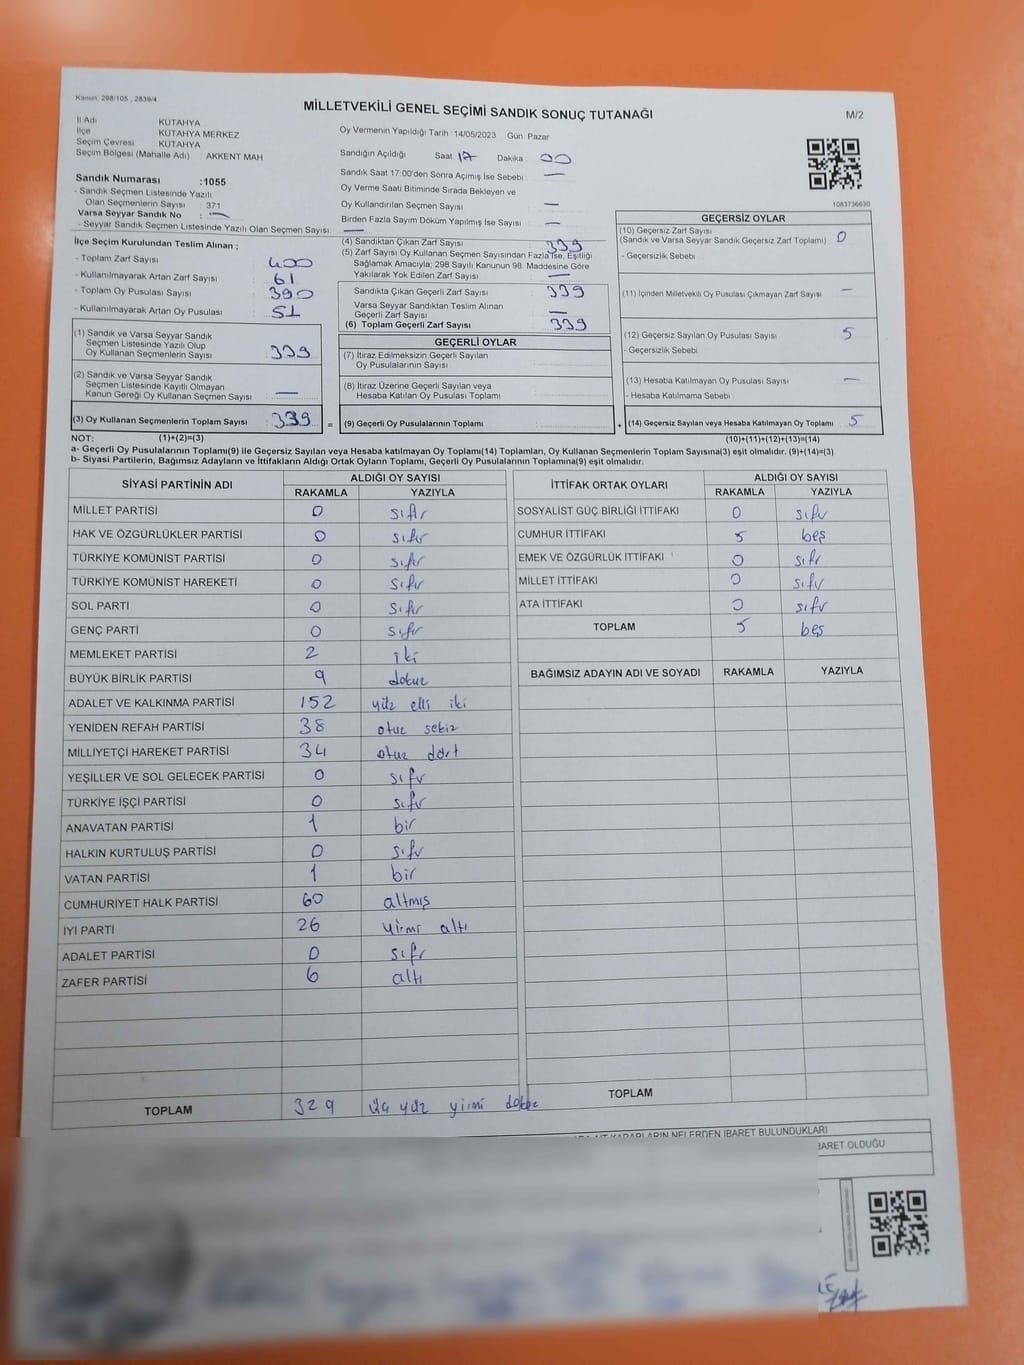 Kanun: 298/105 , 2839/4
MİLLETVEKİLİ GENEL SEÇİMİ SANDIK SONUÇ TUTANAĞI
M/2
İl Adı KÜTAHYA
İlçe KÜTAHYA MERKEZ
Seçim Çevresi KÜTAHYA
Seçim Bölgesi (Mahalle Adı) AKKENT MAH
Oy Vermenin Yapıldığı Tarih :14/05/2023 Gün Pazar
Sandığın Açıldığı Saat 17 Dakika 00
Sandık Saat 17:00'den Sonra Açımış İse Sebebi : —
Oy Verme Saati Bitiminde Sırada Bekleyen ve
Oy Kullandırılan Seçmen Sayısı : —
Birden Fazla Sayım Döküm Yapılmış İse Sayısı : —
1083736630
Sandık Numarası :1055
- Sandık Seçmen Listesinde Yazılı
Olan Seçmenlerin Sayısı : 371
Varsa Seyyar Sandık No : —
- Seyyar Sandık Seçmen Listesinde Yazılı Olan Seçmen Sayısı: —
İlçe Seçim Kurulundan Teslim Alınan ;
- Toplam Zarf Sayısı : 400
- Kullanılmayarak Artan Zarf Sayısı : 61
- Toplam Oy Pusulası Sayısı : 390
- Kullanılmayarak Artan Oy Pusulası : 51
(1) Sandık ve Varsa Seyyar Sandık
Seçmen Listesinde Yazılı Olup
Oy Kullanan Seçmenlerin Sayısı : 339
(2) Sandık ve Varsa Seyyar Sandık
Seçmen Listesinde Kayıtlı Olmayan
Kanun Gereği Oy Kullanan Seçmen Sayısı : —
(3) Oy Kullanan Seçmenlerin Toplam Sayısı : 339 =
(4) Sandıktan Çıkan Zarf Sayısı : 339
(5) Zarf Sayısı Oy Kullanan Seçmen Sayısından Fazla İse, Eşitliği
Sağlamak Amacıyla; 298 Sayılı Kanunun 98. Maddesine Göre
Yakılarak Yok Edilen Zarf Sayısı : —
Sandıkta Çıkan Geçerli Zarf Sayısı : 339
Varsa Seyyar Sandıktan Teslim Alınan
Geçerli Zarf Sayısı : —
(6) Toplam Geçerli Zarf Sayısı : 339
GEÇERLİ OYLAR
(7) İtiraz Edilmeksizin Geçerli Sayılan
Oy Pusulalarının Sayısı :
(8) İtiraz Üzerine Geçerli Sayılan veya
Hesaba Katılan Oy Pusulası Toplamı :
(9) Geçerli Oy Pusulalarının Toplamı : +
GEÇERSİZ OYLAR
(10) Geçersiz Zarf Sayısı
(Sandık ve Varsa Seyyar Sandık Geçersiz Zarf Toplamı) 0
- Geçersizlik Sebebi :
(11) İçinden Milletvekili Oy Pusulası Çıkmayan Zarf Sayısı : —
(12) Geçersiz Sayılan Oy Pusulası Sayısı : 5
- Geçersizlik Sebebi :
(13) Hesaba Katılmayan Oy Pusulası Sayısı : —
- Hesaba Katılmama Sebebi :
(14) Geçersiz Sayılan veya Hesaba Katılmayan Oy Toplamı : 5
NOT: (1)+(2)=(3) (10)+(11)+(12)+(13)=(14)
a- Geçerli Oy Pusulalarının Toplamı(9) ile Geçersiz Sayılan veya Hesaba katılmayan Oy Toplamı(14) Toplamları, Oy Kullanan Seçmenlerin Toplam Sayısına(3) eşit olmalıdır. (9)+(14)=(3)
b- Siyasi Partilerin, Bağımsız Adayların ve İttifakların Aldığı Ortak Oyların Toplamı, Geçerli Oy Pusulalarının Toplamına(9) eşit olmalıdır.
SİYASİ PARTİNİN ADI ALDIĞI OY SAYISI
RAKAMLA YAZIYLA
MİLLET PARTİSİ 0 sıfır
HAK VE ÖZGÜRLÜKLER PARTİSİ 0 sıfır
TÜRKİYE KOMÜNİST PARTİSİ 0 sıfır
TÜRKİYE KOMÜNİST HAREKETİ 0 sıfır
SOL PARTİ 0 sıfır
GENÇ PARTİ 0 sıfır
MEMLEKET PARTİSİ 2 iki
BÜYÜK BİRLİK PARTİSİ 9 dokuz
ADALET VE KALKINMA PARTİSİ 152 yüz elli iki
YENİDEN REFAH PARTİSİ 38 otuz sekiz
MİLLİYETÇİ HAREKET PARTİSİ 34 otuz dört
YEŞİLLER VE SOL GELECEK PARTİSİ 0 sıfır
TÜRKİYE İŞÇİ PARTİSİ 0 sıfır
ANAVATAN PARTİSİ 1 bir
HALKIN KURTULUŞ PARTİSİ 0 sıfır
VATAN PARTİSİ 1 bir
CUMHURİYET HALK PARTİSİ 60 altmış
İYİ PARTİ 26 yirmi altı
ADALET PARTİSİ 0 sıfır
ZAFER PARTİSİ 6 altı
TOPLAM 329 üç yüz yirmi dokuz
İTTİFAK ORTAK OYLARI ALDIĞI OY SAYISI
RAKAMLA YAZIYLA
SOSYALİST GÜÇ BİRLİĞİ İTTİFAKI 0 sıfır
CUMHUR İTTİFAKI 5 beş
EMEK VE ÖZGÜRLÜK İTTİFAKI 0 sıfır
MİLLET İTTİFAKI 0 sıfır
ATA İTTİFAKI 0 sıfır
TOPLAM 5 beş
BAĞIMSIZ ADAYIN ADI VE SOYADI RAKAMLA YAZIYLA
TOPLAM
KARARLARIN NELERDEN İBARET BULUNDUKLARI
İBARET OLDUĞU